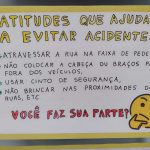 ATITUDES QUE AJUDAM
A EVITAR ACIDENTES
ATRAVESSAR A RUA NA FAIXA DE PEDE
NÃO COLOCAR A CABEÇA OU BRAÇOS P
FORA DOS VEÍCULOS.
USAR CINTO DE SEGURANÇA,
NÃO BRINCAR NAS PROXIMIDADES D
RUAS, ETC
VOCÊ FAZ SUA PARTE?